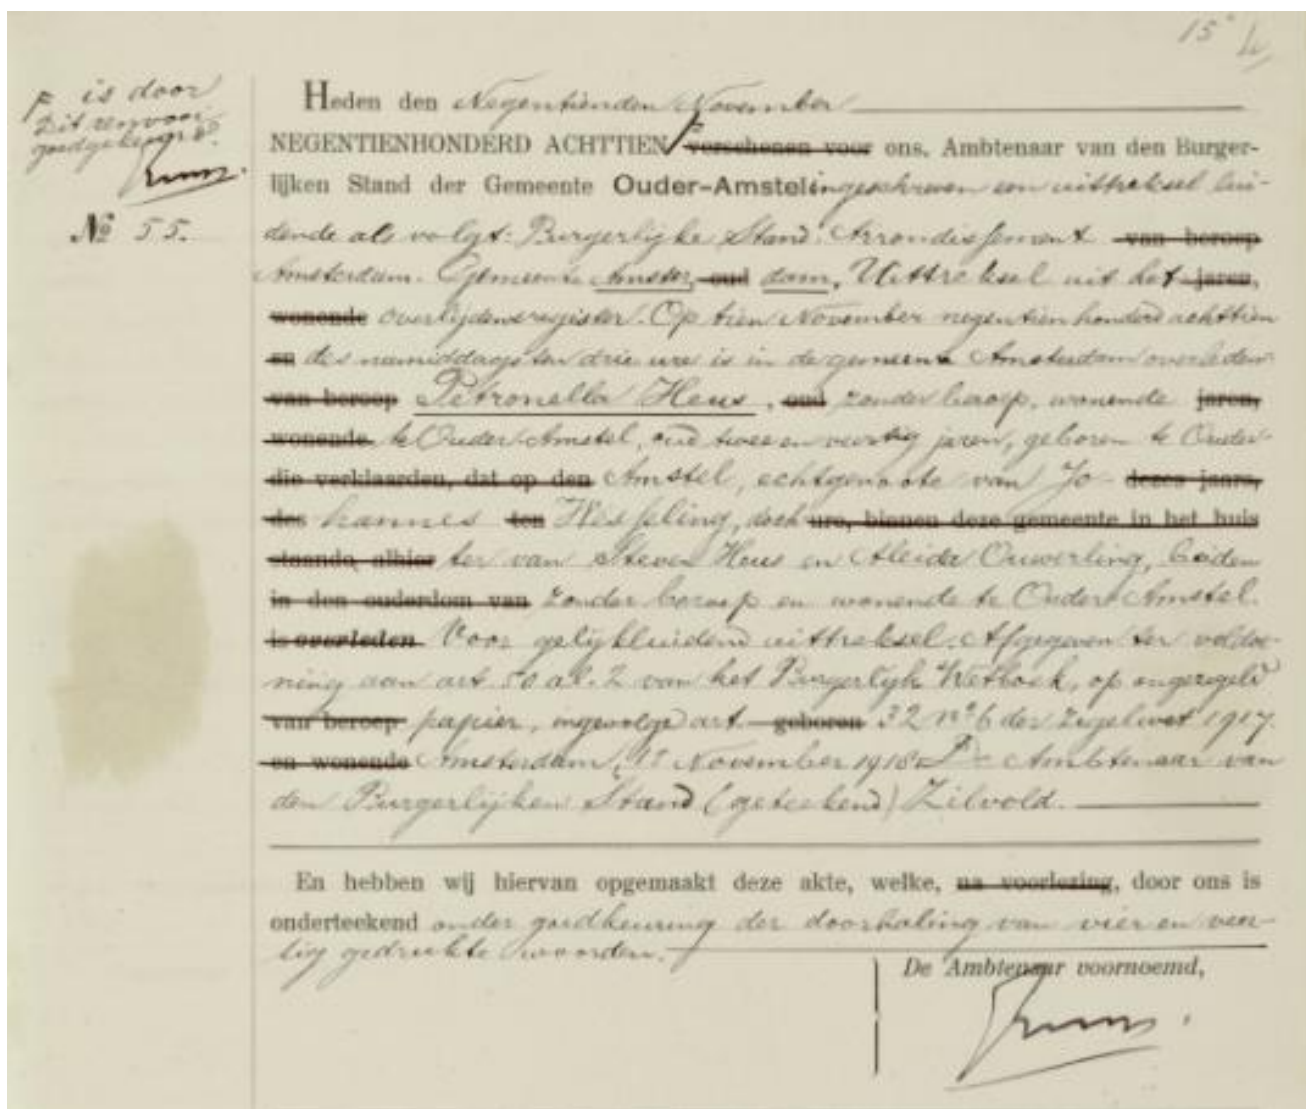 15
is door
Dit renvooi
goedgekeurd
No 55.
Heden den Negentienden November
NEGENTIENHONDERD ACHTTIEN verschenen voor ons, Ambtenaar van den Burger-
lijken Stand der Gemeente Ouder-Amstel ingeschreven een uittreksel lui-
dende als volgt: Burgerlijke Stand. Arrondissement van beroep
Amsterdam. Gemeente Amster oud dam. Uittreksel uit het jaren,
wonende overlijdensregister. Op tien November negentienhonderd achttien
en des namiddags ten drie ure is in de gemeente Amsterdam overleden
van beroep Petronella Heus, oud zonder beroep, wonende jaren,
wonende te Ouder Amstel, oud twee en veertig jaren, geboren te Ouder-
die verklaarden, dat op den Amstel, echtgenoote van Jo- dezes jaars,
des hannes ten Wesseling, doch ure, binnen deze gemeente in het huis
staande alhier ter van Steven Heus en Aleida Ouwerling, beiden
in den ouderdom van zonder beroep en wonende te Ouder Amstel.
is overleden Voor gelijkluidend uittreksel. Afgegeven ter voldoe-
ning aan art. 50 al. 2 van het Burgerlijk Wetboek, op ongezegeld
van beroep papier, ingevolge art. geboren 32 no 6 der Zegelwet 1917.
en wonende Amsterdam, November 1918. De Ambtenaar van
den Burgerlijken Stand (geteekend) Zilvold.
En hebben wij hiervan opgemaakt deze akte, welke, na voorlezing, door ons is
onderteekend onder goedkeuring der doorhaling van vier en veer-
tig gedrukte woorden.
De Ambtenaar voornoemd,